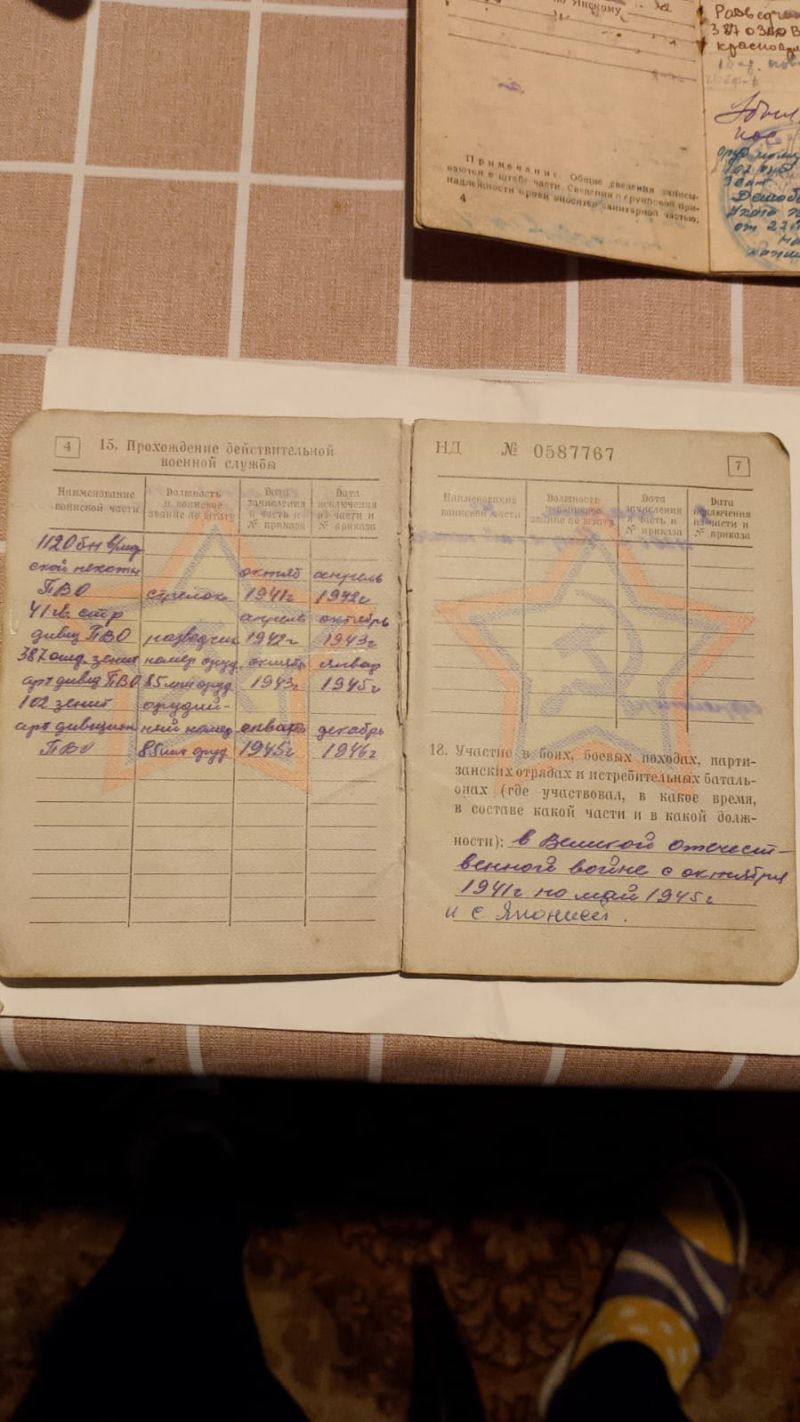 по Янскому
Развед
387 ОЗАДВ
красноар
Примечание. Общие сведения записы-
ваются в штабе части. Сведения о групповой при-
надлежности крови вносятся санитарной частью.
4
4
15. Прохождение действительной
военной службы
Наименование воинской части
Должность и воинское звание по штату
Дата зачисления в часть и № приказа
Дата исключения из части и № приказа
1120 бн
ской пехоты октяб апрель
ПВО стрелок 1941г 1942г
41 гв. стр апрель октябрь
дивиз ПВО разведчик 1942г 1943г
387 зенит номер оруд октябрь январ
арт дивиз ПВО 85 мм оруд 1943г 1945г
102 зенит орудий-
арт дивизион ный номер январь декабрь
ПВО 85мм оруд 1945г 1946г
НД № 0587767
7
Наименование воинской части
Должность и воинское звание по штату
Дата зачисления в часть и № приказа
Дата исключения из части и № приказа
18. Участие в боях, боевых походах, парти-
занских отрядах и истребительных баталь-
онах (где участвовал, в какое время,
в составе какой части и в какой долж-
ности): в Великой отечест-
венной войне с октября
1941г по май 1945г
и с Японией.